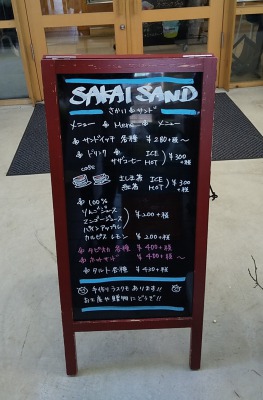 SAKAI SAND
さかい サンド
メニュー Menu メニュー
サンドイッチ 各種 ¥280+税〜
ドリンク
サザコーヒー ICE HOT ¥300+税
cafe
ICE
紅茶 HOT ¥300+税
100%
りんごジュース
マンゴージュース ¥200+税
パインアップル
カルピス レモン ¥200+税
タピオカ 各種 ¥400+税
ホットサンド ¥400+税〜
タルト各種 ¥430+税
手作りラスクもあります!!
お土産や贈物にどうぞ!!